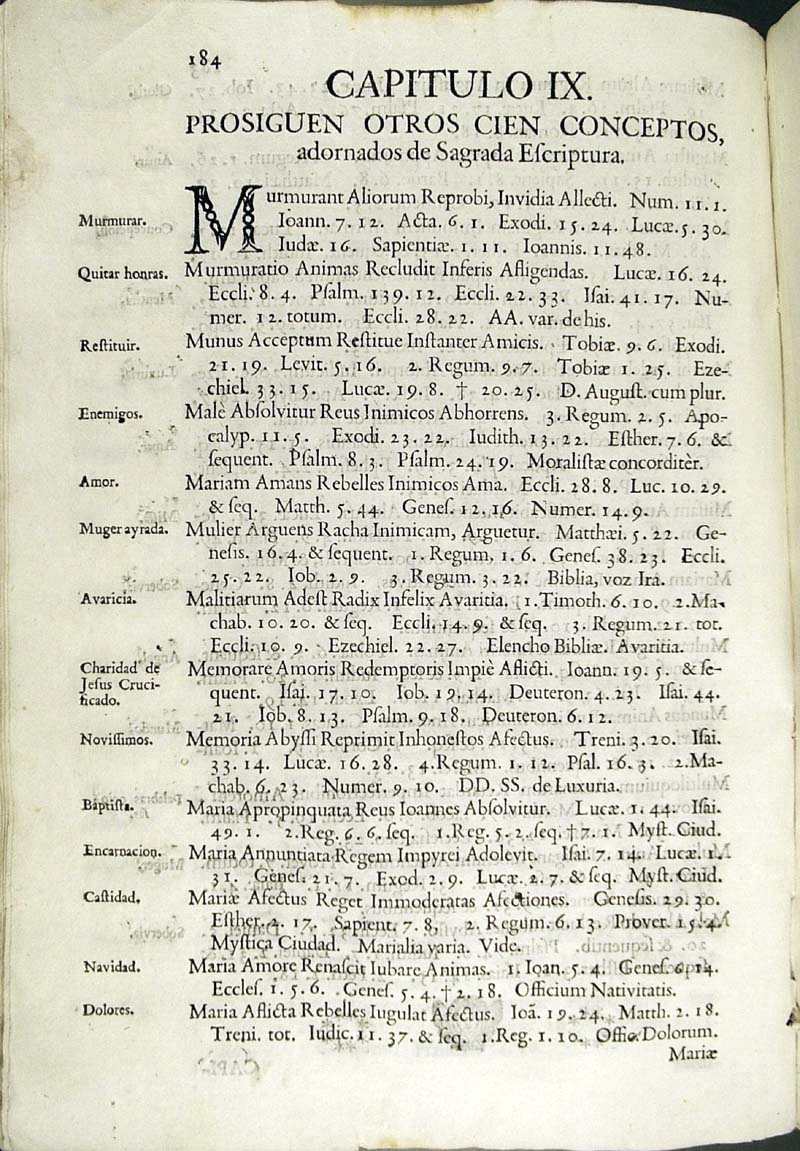 184
CAPITULO IX.
PROSIGUEN OTROS CIEN CONCEPTOS,
adornados de Sagrada Eſcriptura.
Murmurar.
Murmurant Aliorum Reprobi, Invidia Allecti. Num. 11.1.
Ioann. 7. 12. Acta. 6. 1. Exodi. 15. 24. Lucæ. 5. 30.
Iudæ. 16. Sapientiæ. 1. 11. Ioannis. 11. 48.
Quitar honras.
Murmuratio Animas Recludit Inferis Afligendas. Lucæ. 16. 24.
Eccli. 8. 4. Pſalm. 139. 12. Eccli. 22. 33. Iſai. 41. 17. Nu-
mer. 12. totum. Eccli. 28. 22. AA. var. de his.
Reſtituir.
Munus Acceptum Reſtitue Inſtanter Amicis. Tobiæ. 9. 6. Exodi.
21. 19. Levit. 5. 16. 2. Regum. 9. 7. Tobiæ 1. 25. Eze-
chiel. 33. 15. Lucæ. 19. 8. † 20. 25. D. Auguſt. cum plur.
Enemigos.
Malè Abſolvitur Reus Inimicos Abhorrens. 3. Regum. 2. 5. Apo-
calyp. 11. 5. Exodi. 23. 22. Iudith. 13. 22. Eſther. 7. 6. &
ſequent. Pſalm. 8. 3. Pſalm. 24. 19. Moraliſtæ concorditèr.
Amor.
Mariam Amans Rebelles Inimicos Ama. Eccli. 28. 8. Luc. 10. 29.
& ſeq. Matth. 5. 44. Geneſ. 12. 16. Numer. 14. 9.
Muger ayrada.
Mulier Arguens Racha Inimicam, Arguetur. Matthæi. 5. 22. Ge-
neſis. 16. 4. & ſequent. 1. Regum. 1. 6. Geneſ. 38. 23. Eccli.
25. 22. Iob. 2. 9. 3. Regum. 3. 22. Biblia, voz Ira.
Avaricia.
Malitiarum Adeſt Radix Infelix Avaritia. 1. Timoth. 6. 10. 2. Ma-
chab. 10. 20. & ſeq. Eccli. 14. 9. & ſeq. 3. Regum. 21. tot.
Eccli. 10. 9. Ezechiel. 22. 27. Elencho Bibliæ. Avaritia.
Charidad de
Jeſus Cruci-
ficado.
Memorare Amoris Redemptoris Impiè Aflicti. Ioann. 19. 5. & ſe-
quent. Iſai. 17. 10. Iob. 19. 14. Deuteron. 4. 23. Iſai. 44.
21. Iob. 8. 13. Pſalm. 9. 18. Deuteron. 6. 12.
Noviſſimos.
Memoria Abyſſi Reprimit Inhoneſtos Afectus. Treni. 3. 20. Iſai.
33. 14. Lucæ. 16. 28. 4. Regum. 1. 12. Pſal. 16. 3. 2. Ma-
chab. 6. 23. Numer. 9. 10. DD. SS. de Luxuria.
Baptiſta.
Maria Apropinquata Reus Ioannes Abſolvitur. Lucæ. 1. 44. Iſai.
49. 1. 2. Reg. 6. 6. ſeq. 1. Reg. 5. 2. ſeq. † 7. 1. Myſt. Ciud.
Encarnacion.
Maria Annuntiata Regem Impyrei Adolevit. Iſai. 7. 14. Lucæ. 1.
31. Geneſ. 21. 7. Exod. 2. 9. Lucæ. 2. 7. & ſeq. Myſt. Ciud.
Caſtidad.
Mariæ Afectus Reget Immoderatas Afectiones. Geneſis. 29. 30.
Eſther. 2. 17. Sapient. 7. 8. 2. Regum. 6. 13. Prover. 15. 4.
Myſtica Ciudad. Marialia varia. Vide.
Navidad.
Maria Amore Renaſcit Iubare Animas. 1. Ioan. 5. 4. Geneſ. 6. 14.
Eccleſ. 1. 5. 6. Geneſ. 5. 4. † 2. 18. Officium Nativitatis.
Dolores.
Maria Aflicta Rebelles Iugulat Afectus. Ioã. 19. 24. Matth. 2. 18.
Treni. tot. Iudic. 11. 37. & ſeq. 1. Reg. 1. 10. Offic. Dolorum.
Mariæ